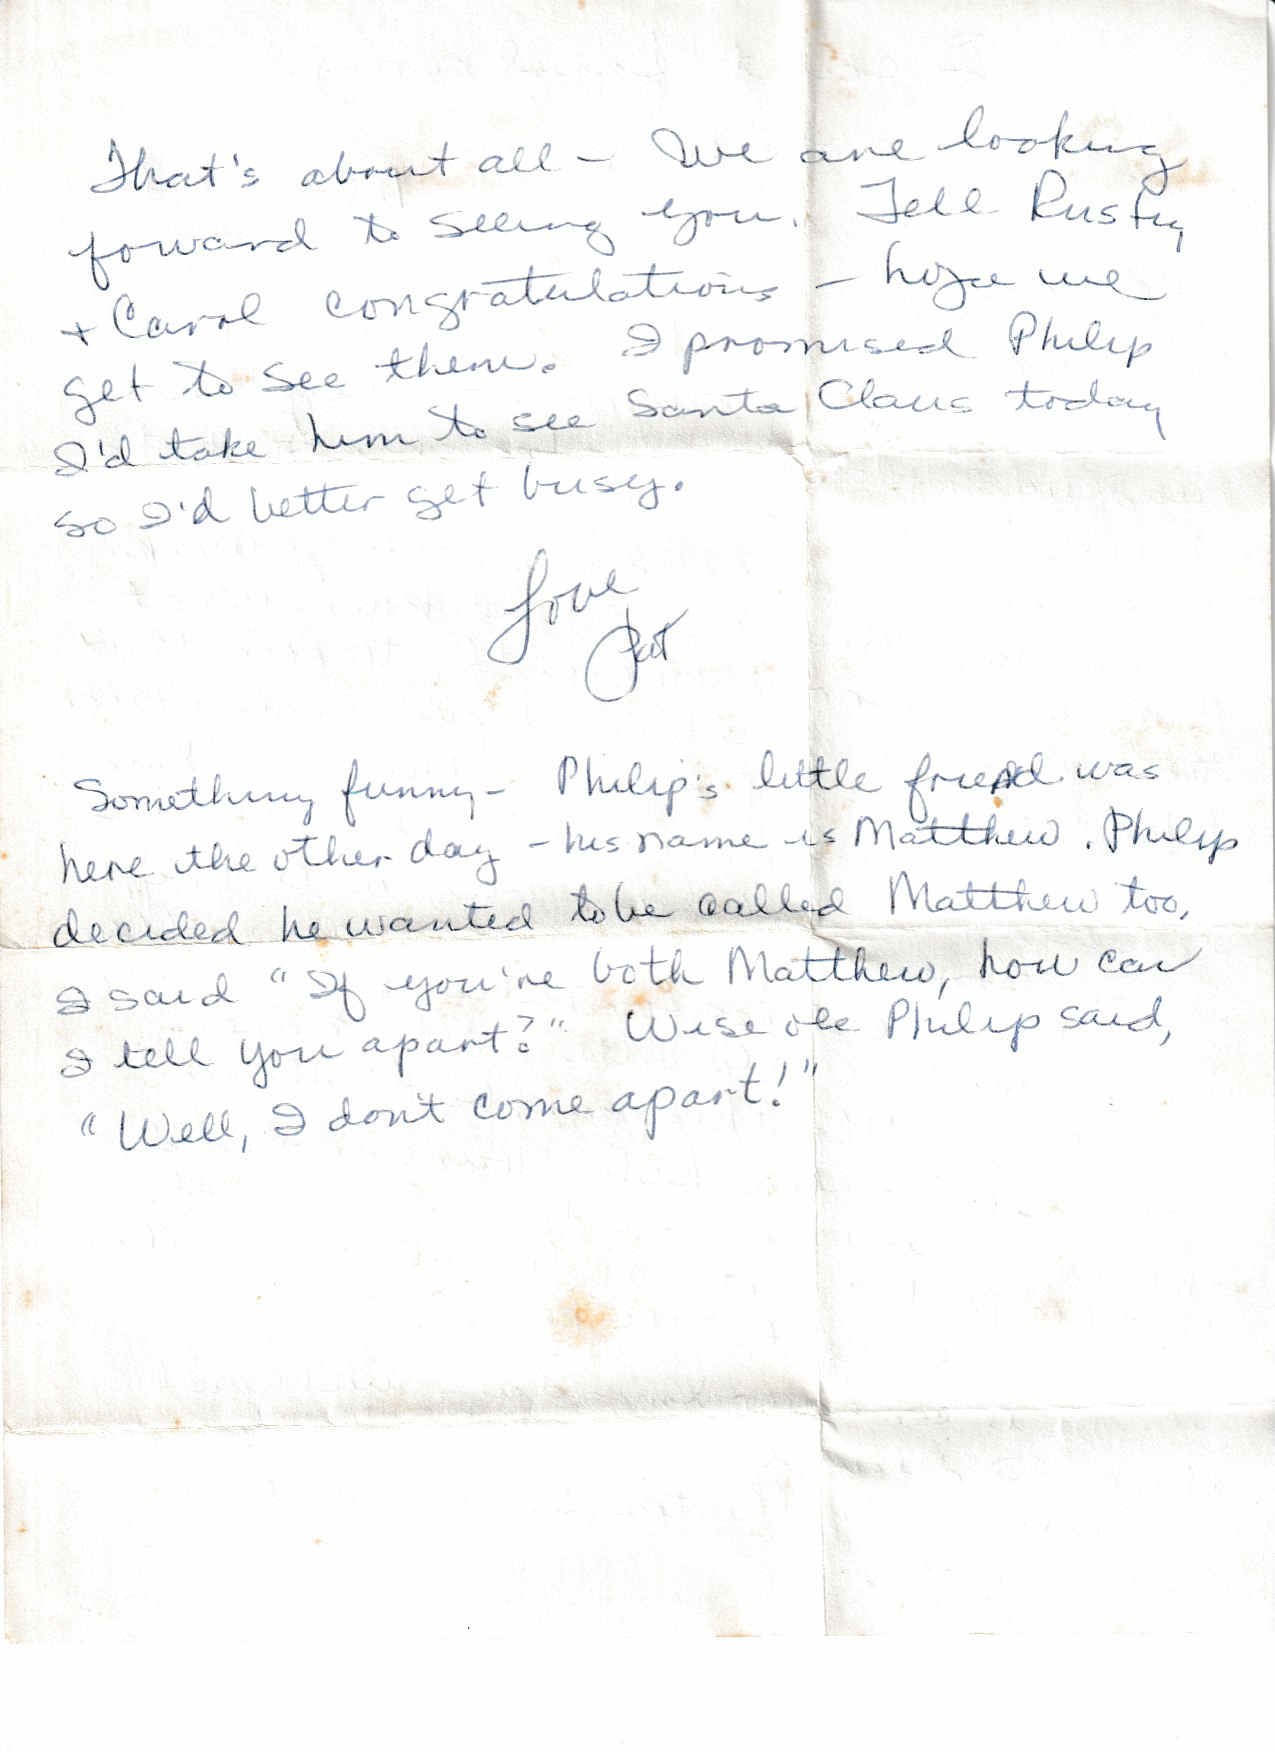 That's about all - We are looking
foward to seeing you. Tell Rusty
+ Carol congratulations - hope we
get to see them. I promised Philip
I'd take him to see Santa Claus today
so I'd better get busy.
Love
Pat
Something funny - Philip's little friend was
here the other day - his name is Matthew. Philip
decided he wanted to be called Matthew too,
I said "If you're both Matthew, how can
I tell you apart?" Wise ole Philip said,
"Well, I don't come apart!"